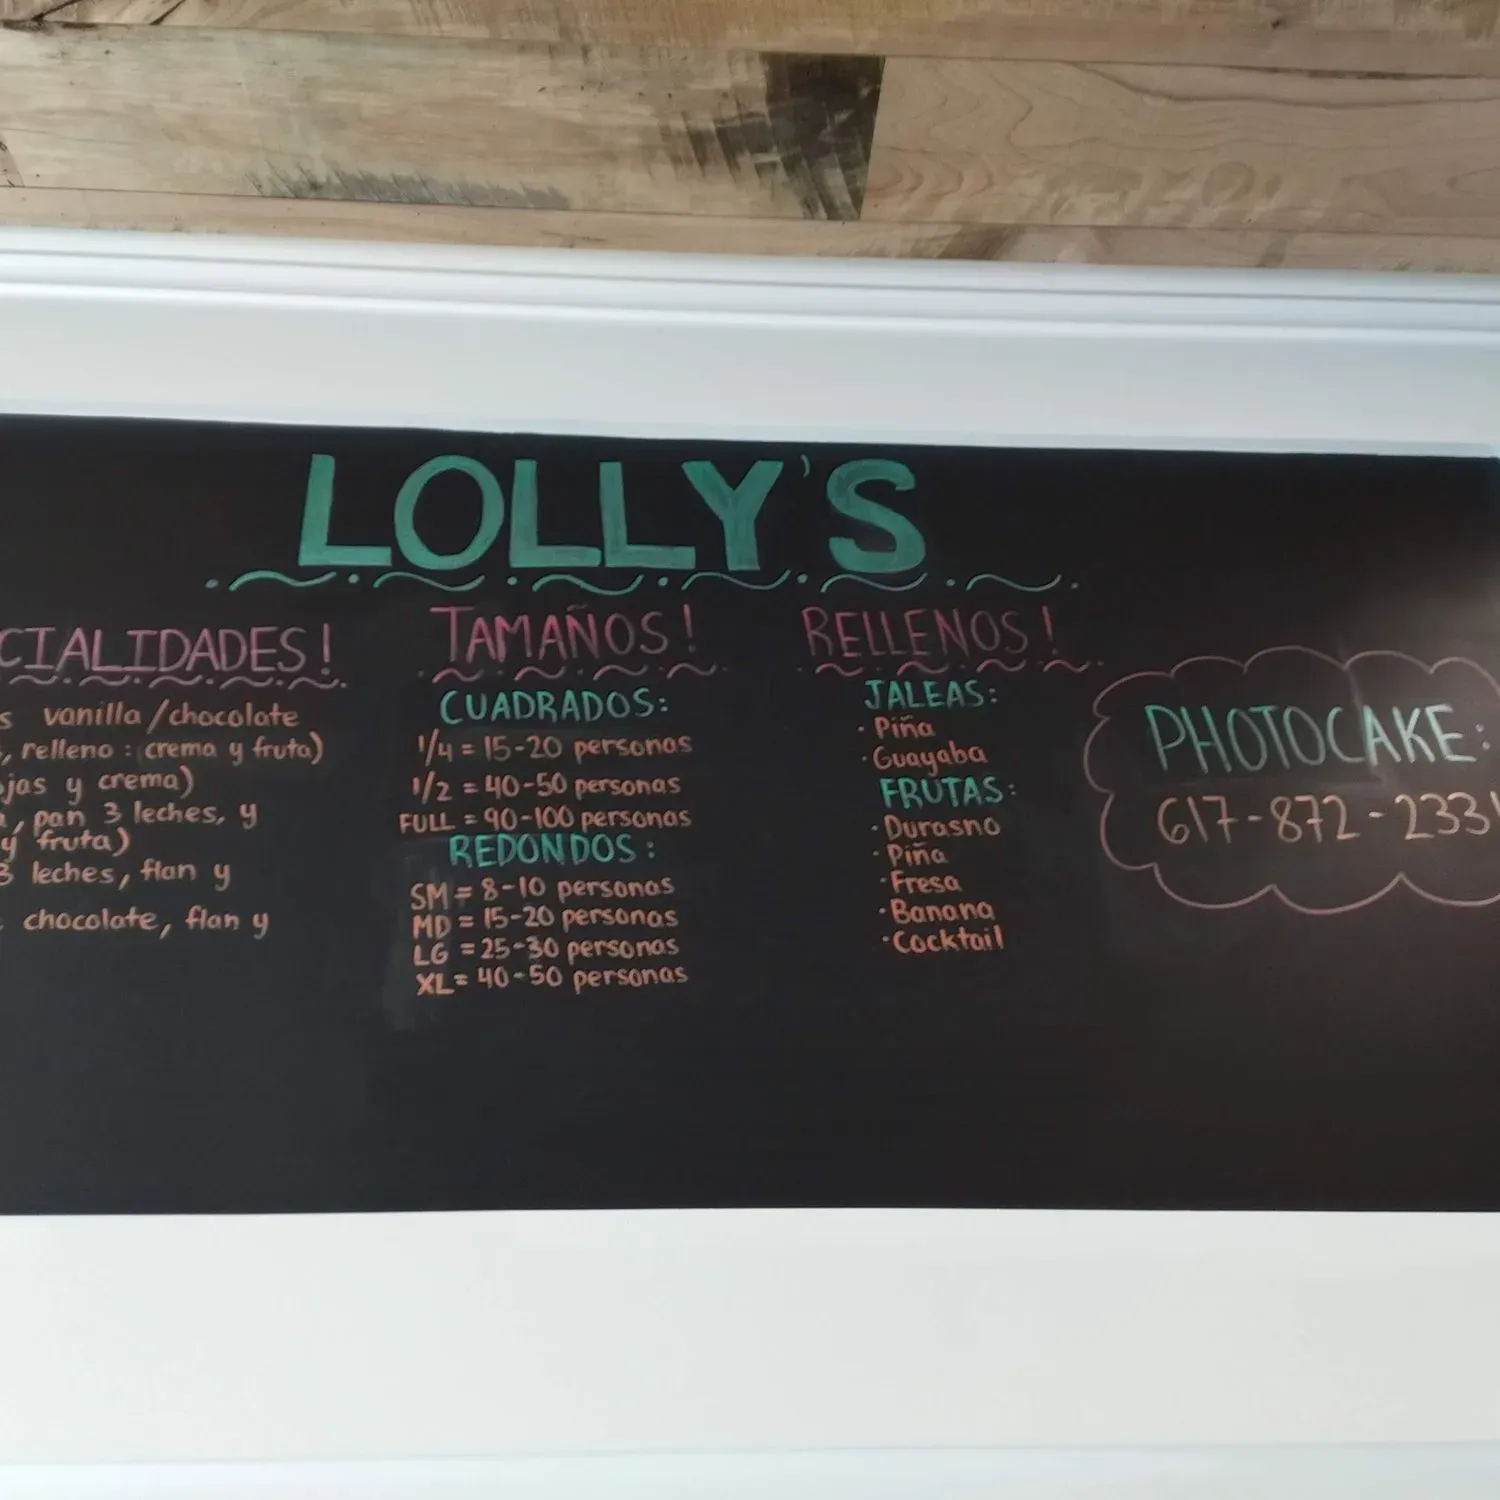 LOLLY'S
CIALIDADES!
s vanilla/chocolate
, relleno: crema y fruta)
jas y crema)
, pan 3 leches, y
y fruta)
3 leches, flan y
chocolate, flan y
TAMAÑOS!
CUADRADOS:
1/4 = 15-20 personas
1/2 = 40-50 personas
FULL = 90-100 personas
REDONDOS:
SM = 8-10 personas
MD = 15-20 personas
LG = 25-30 personas
XL = 40-50 personas
RELLENOS!
JALEAS:
· Piña
· Guayaba
FRUTAS:
· Durasno
· Piña
· Fresa
· Banana
· Cocktail
PHOTOCAKE:
617-872-233